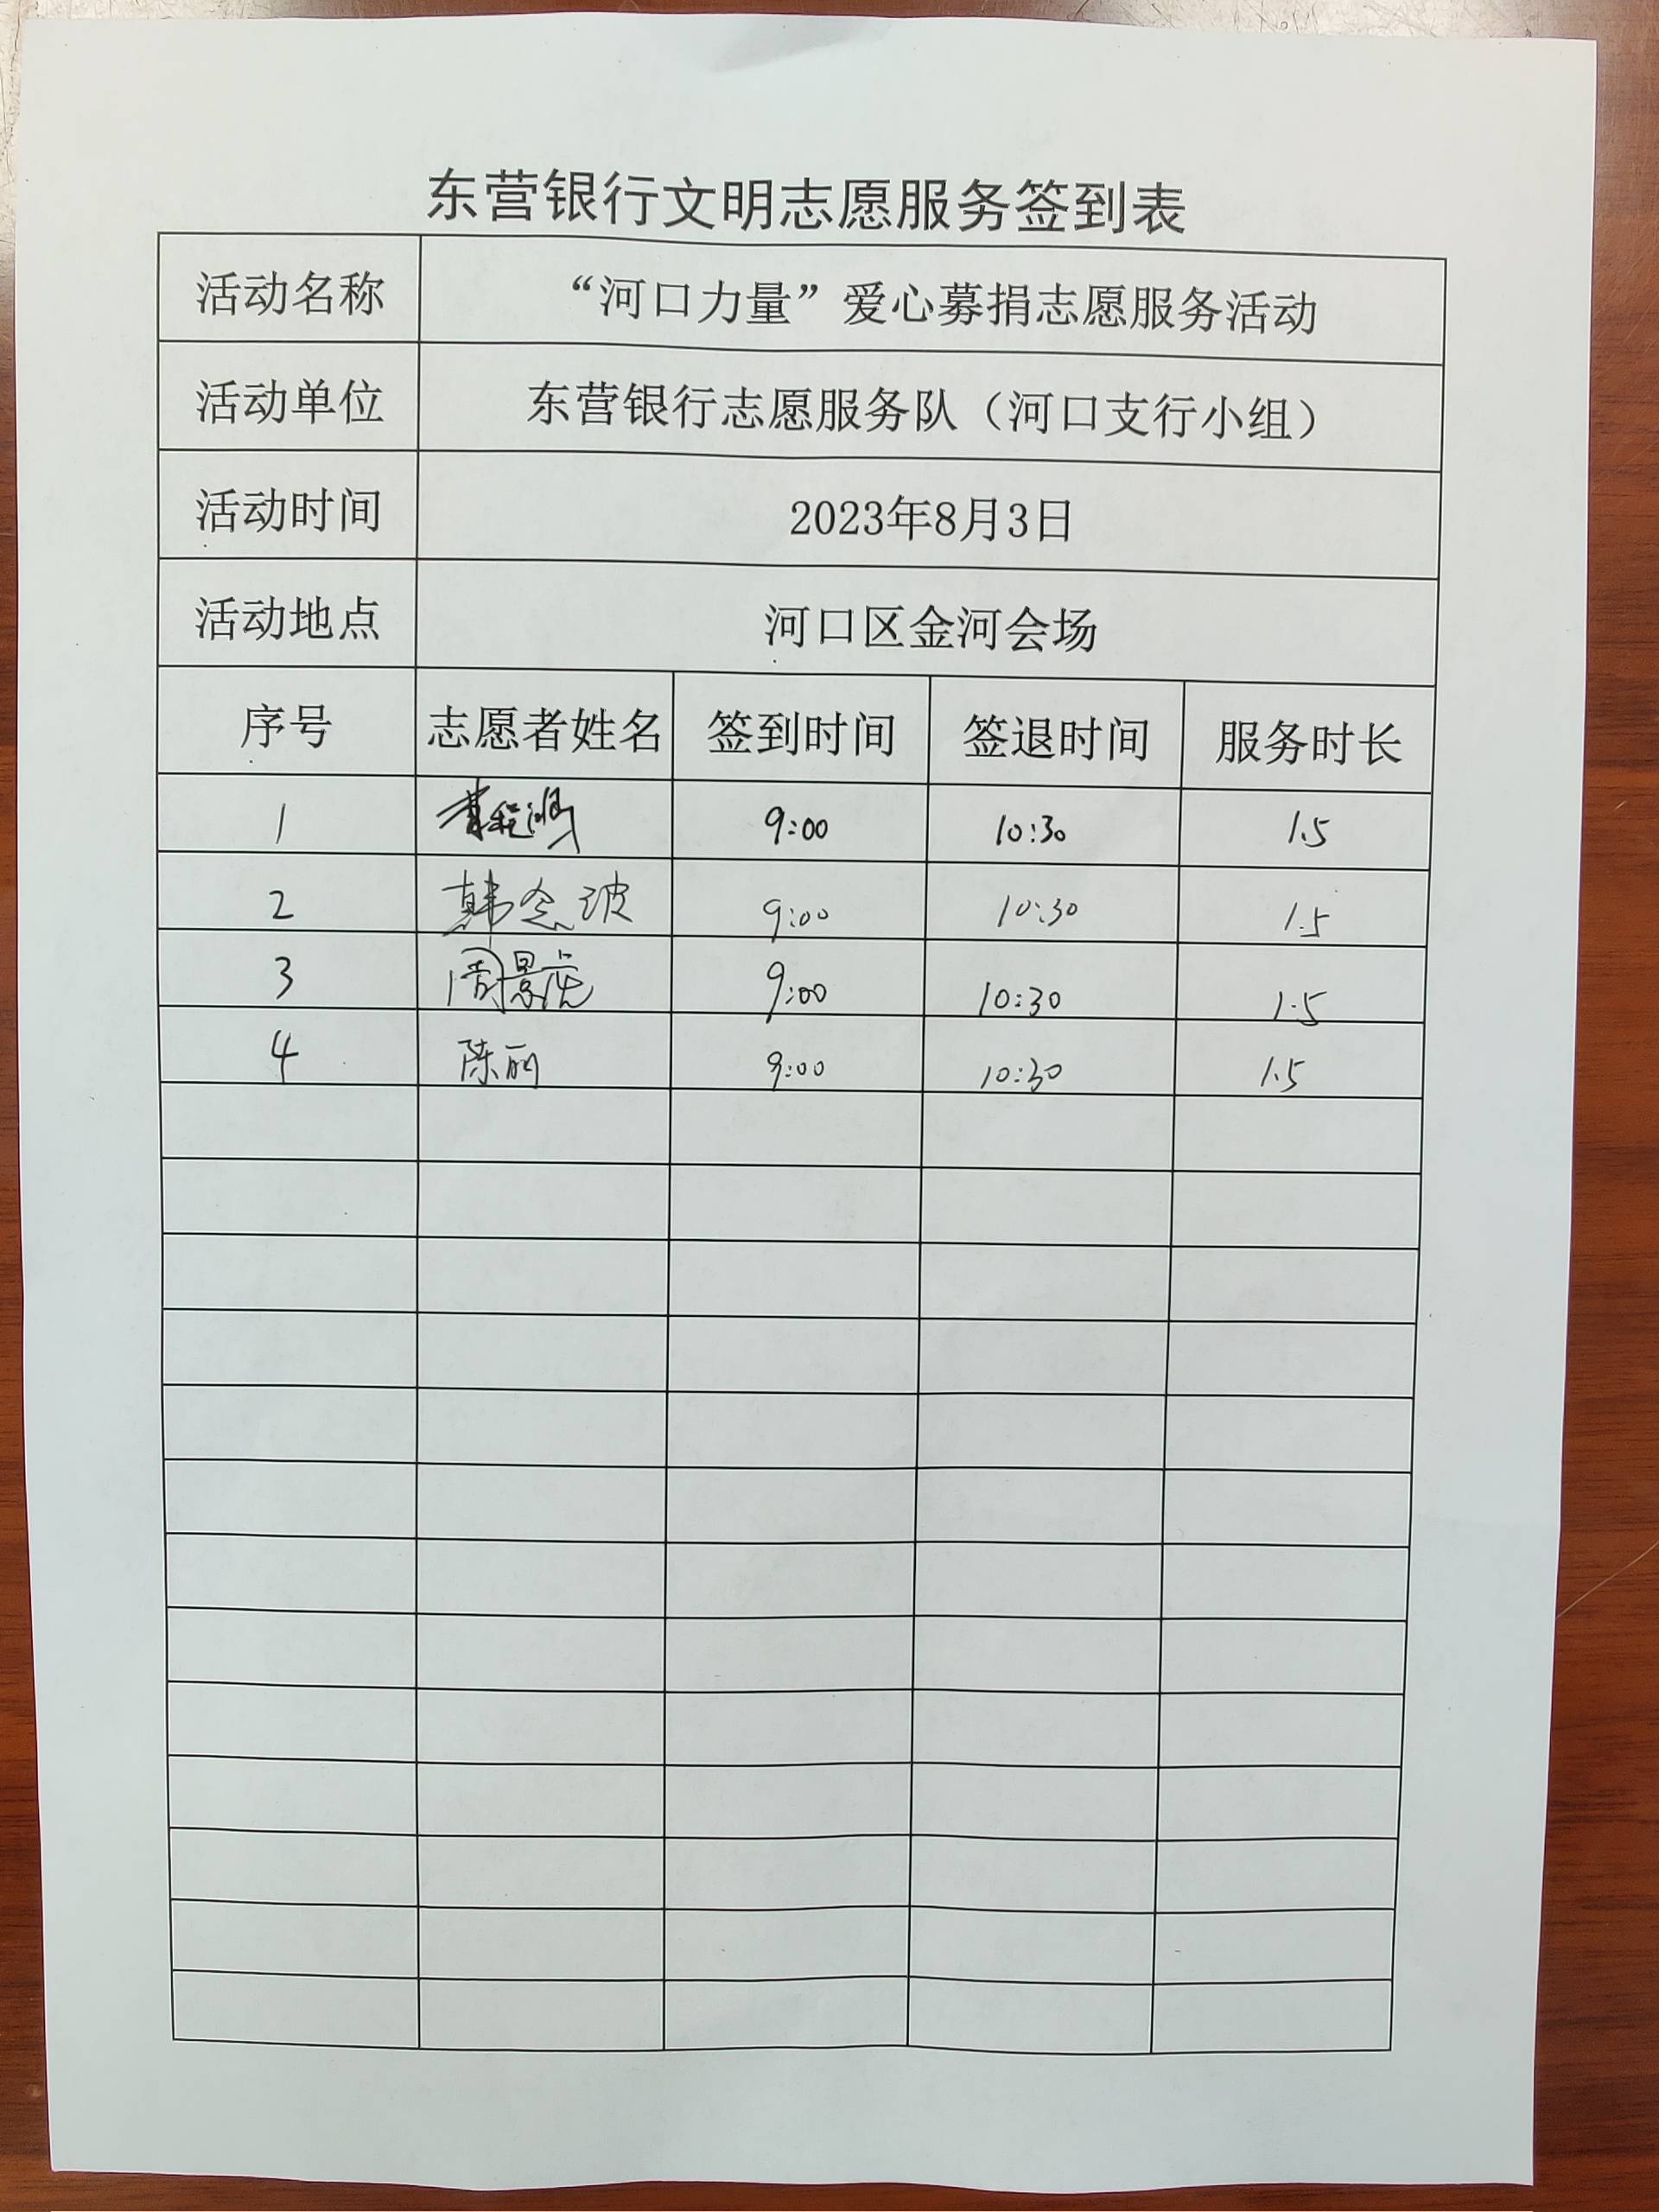 东营银行文明志愿服务签到表
活动名称 “河口力量”爱心募捐志愿服务活动
活动单位 东营银行志愿服务队（河口支行小组）
活动时间 2023年8月3日
活动地点 河口区金河会场
序号 志愿者姓名 签到时间 签退时间 服务时长
1 9:00 10:30 1.5
2 韩念波 9:00 10:30 1.5
3 周景虎 9:00 10:30 1.5
4 陈丽 9:00 10:30 1.5